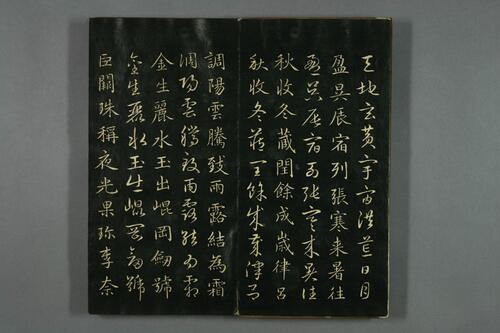 天地玄黃宇宙洪荒日月
盈昃辰宿列張寒来暑往
盈昃辰宿列張寒来暑往
秋收冬藏閏餘成歲律呂
秋收冬藏閏餘成歲律呂
調陽雲騰致雨露結為霜
調陽雲騰致雨露結為霜
金生麗水玉出崐岡劔號
金生麗水玉出崐岡劔號
巨闕珠稱夜光果珍李奈